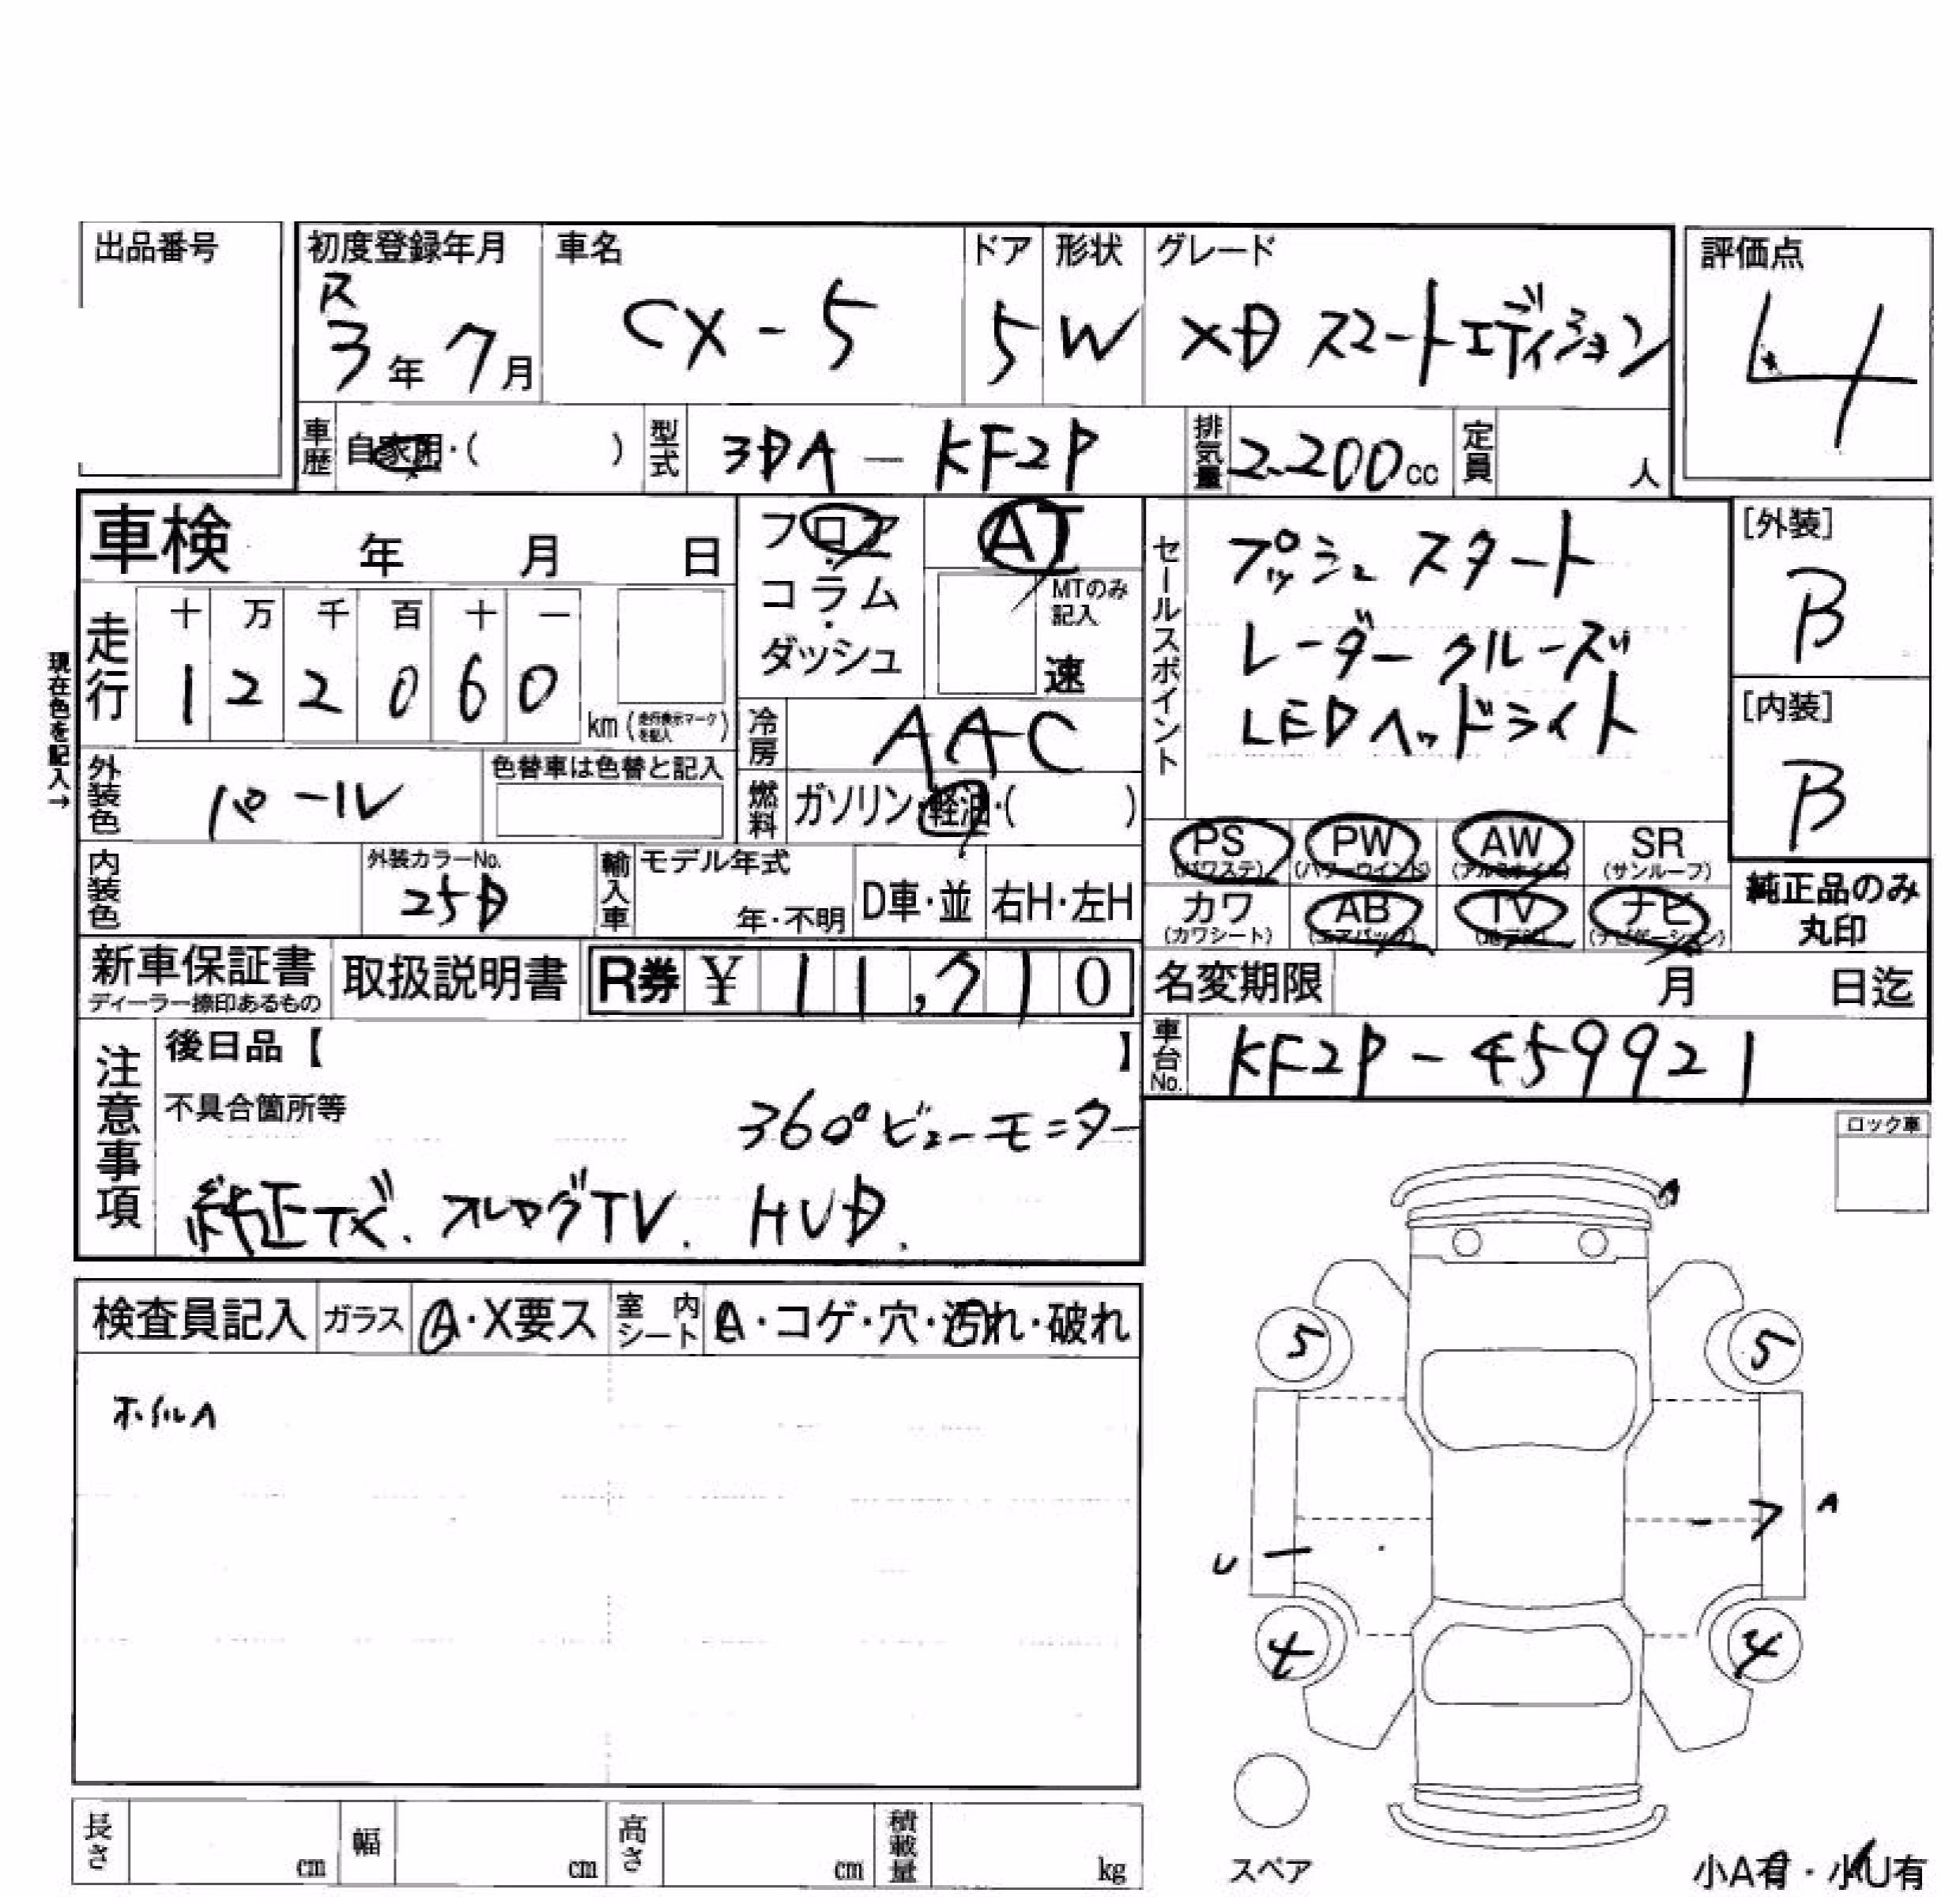 出品番号
初度登録年月 車名 ドア 形状 グレード 評価点
R
3年 7月 CX-5 5 W XD スマートエディション 4
車歴 自家用・( ) 型式 3DA-KF2P 排気量 2.200cc 定員 人
車検 年 月 日
フロア AT
コラム MTのみ記入
ダッシュ 速
セールスポイント
プッシュスタート
レーダークルーズ
LEDヘッドライト
[外装]
B
[内装]
B
現在色を記入→
走行 十 万 千 百 十 一
1 2 2 0 6 0 km (走行表示マークを記入)
冷房 AAC
外装色 パール 色替車は色替と記入
燃料 ガソリン・軽油・( )
内装色 外装カラーNo. 25D
輸入車 モデル年式 年・不明 D車・並 右H・左H
PS (パワステ) PW (パワーウインド) AW (アルミホイル) SR (サンルーフ)
カワ (カワシート) AB (エアバッグ) TV (地デジ) ナビ (ナビゲーション)
純正品のみ
丸印
新車保証書 取扱説明書 R券 ¥ 11,710
ディーラー捺印あるもの
名変期限 月 日迄
車台No. KF2P-459921
注意事項
後日品【 】
不具合箇所等
360°ビューモニター
純正ナビ、フルセグTV. HUD.
ロック車
検査員記入 ガラス A・X要ス 室内シート A・コゲ・穴・汚れ・破れ
ホイルA
A
5 5
A
U
4 4
スペア
小A有・小U有
長さ cm 幅 cm 高さ cm 積載量 kg